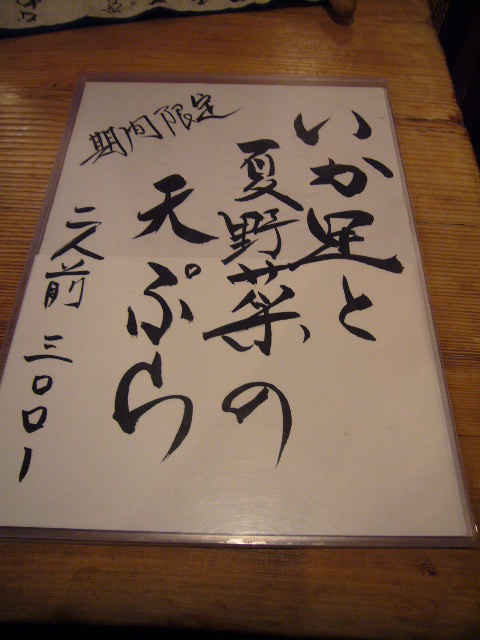 いか足と
夏野菜の
天ぷら
期間限定
二人前 三〇〇〇ー